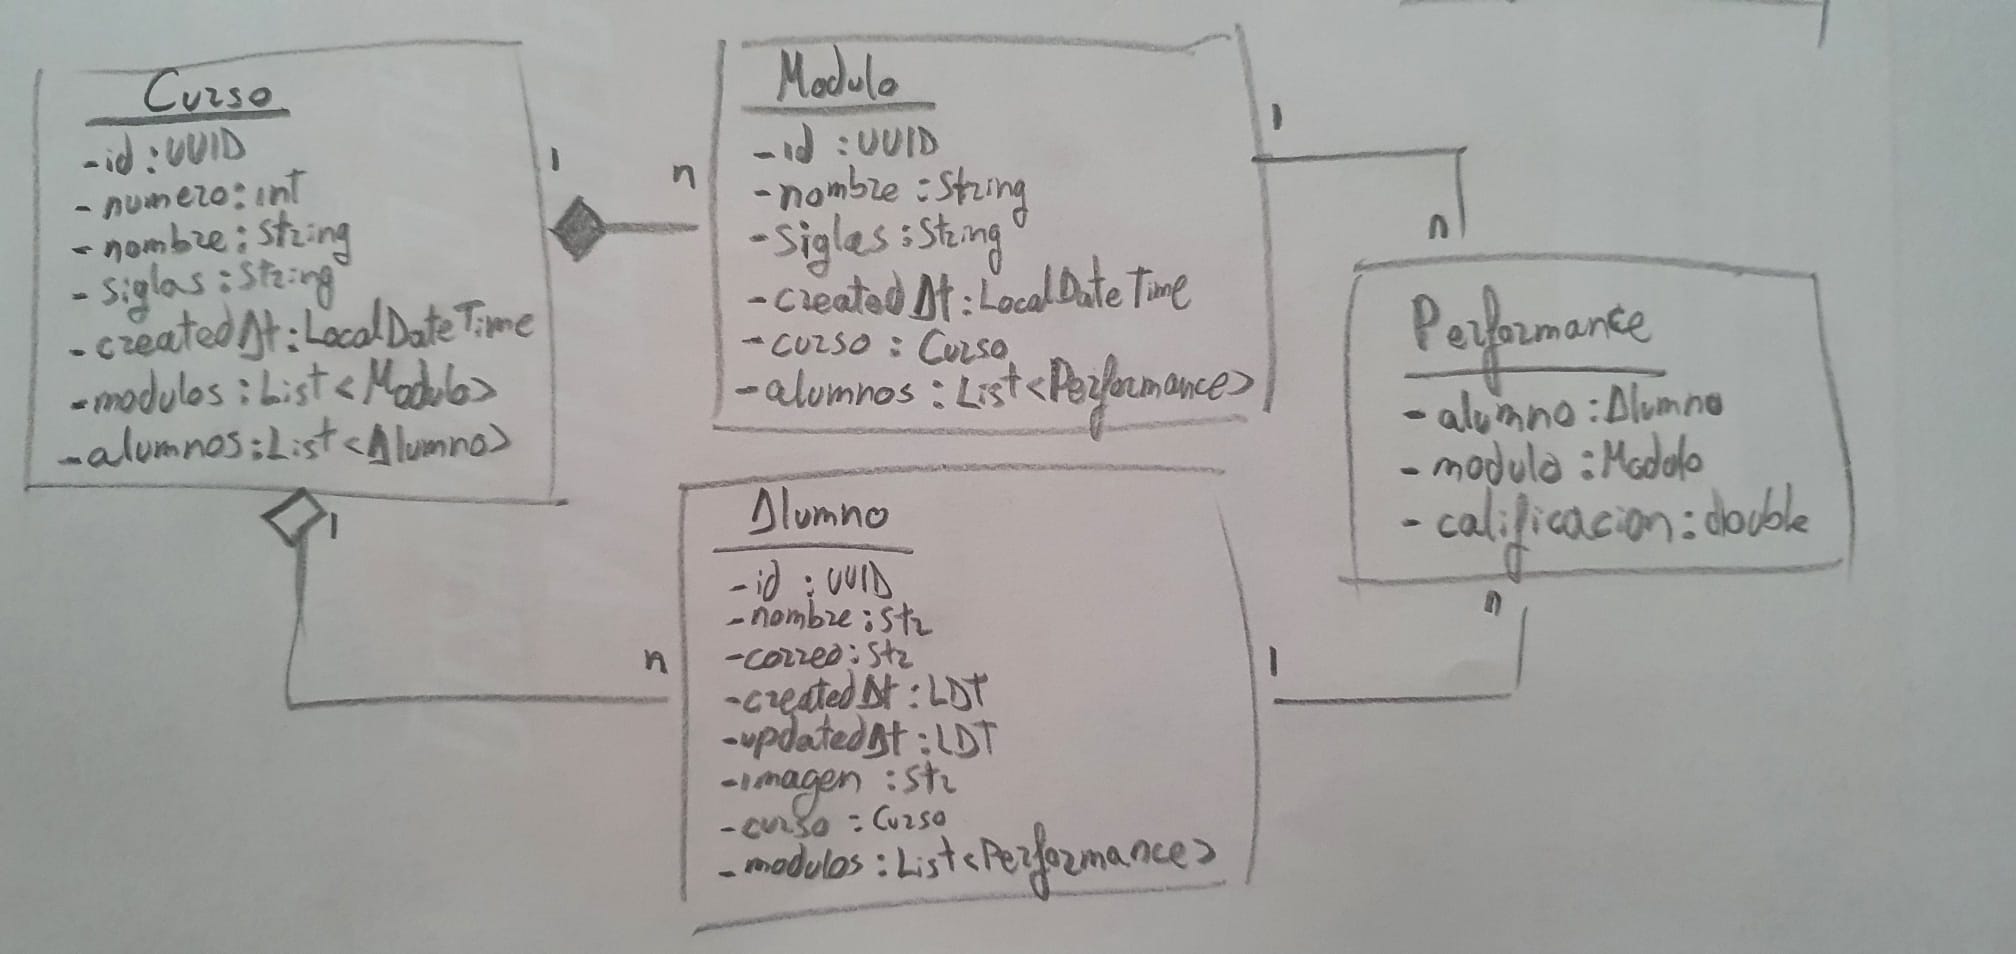 Curso
- id : UUID
- numero : int
- nombre : String
- siglas : String
- createdAt : LocalDateTime
- modulos : List <Modulo>
- alumnos : List <Alumno>
1
n
Modulo
- id : UUID
- nombre : String
- siglas : String
- createdAt : LocalDateTime
- curso : Curso
- alumnos : List <Performance>
1
n
Performance
- alumno : Alumno
- modulo : Modulo
- calificacion : double
n
1
n
1
Alumno
- id : UUID
- nombre : Str
- correo : Str
- createdAt : LDT
- updatedAt : LDT
- imagen : Str
- curso : Curso
- modulos : List <Performance>